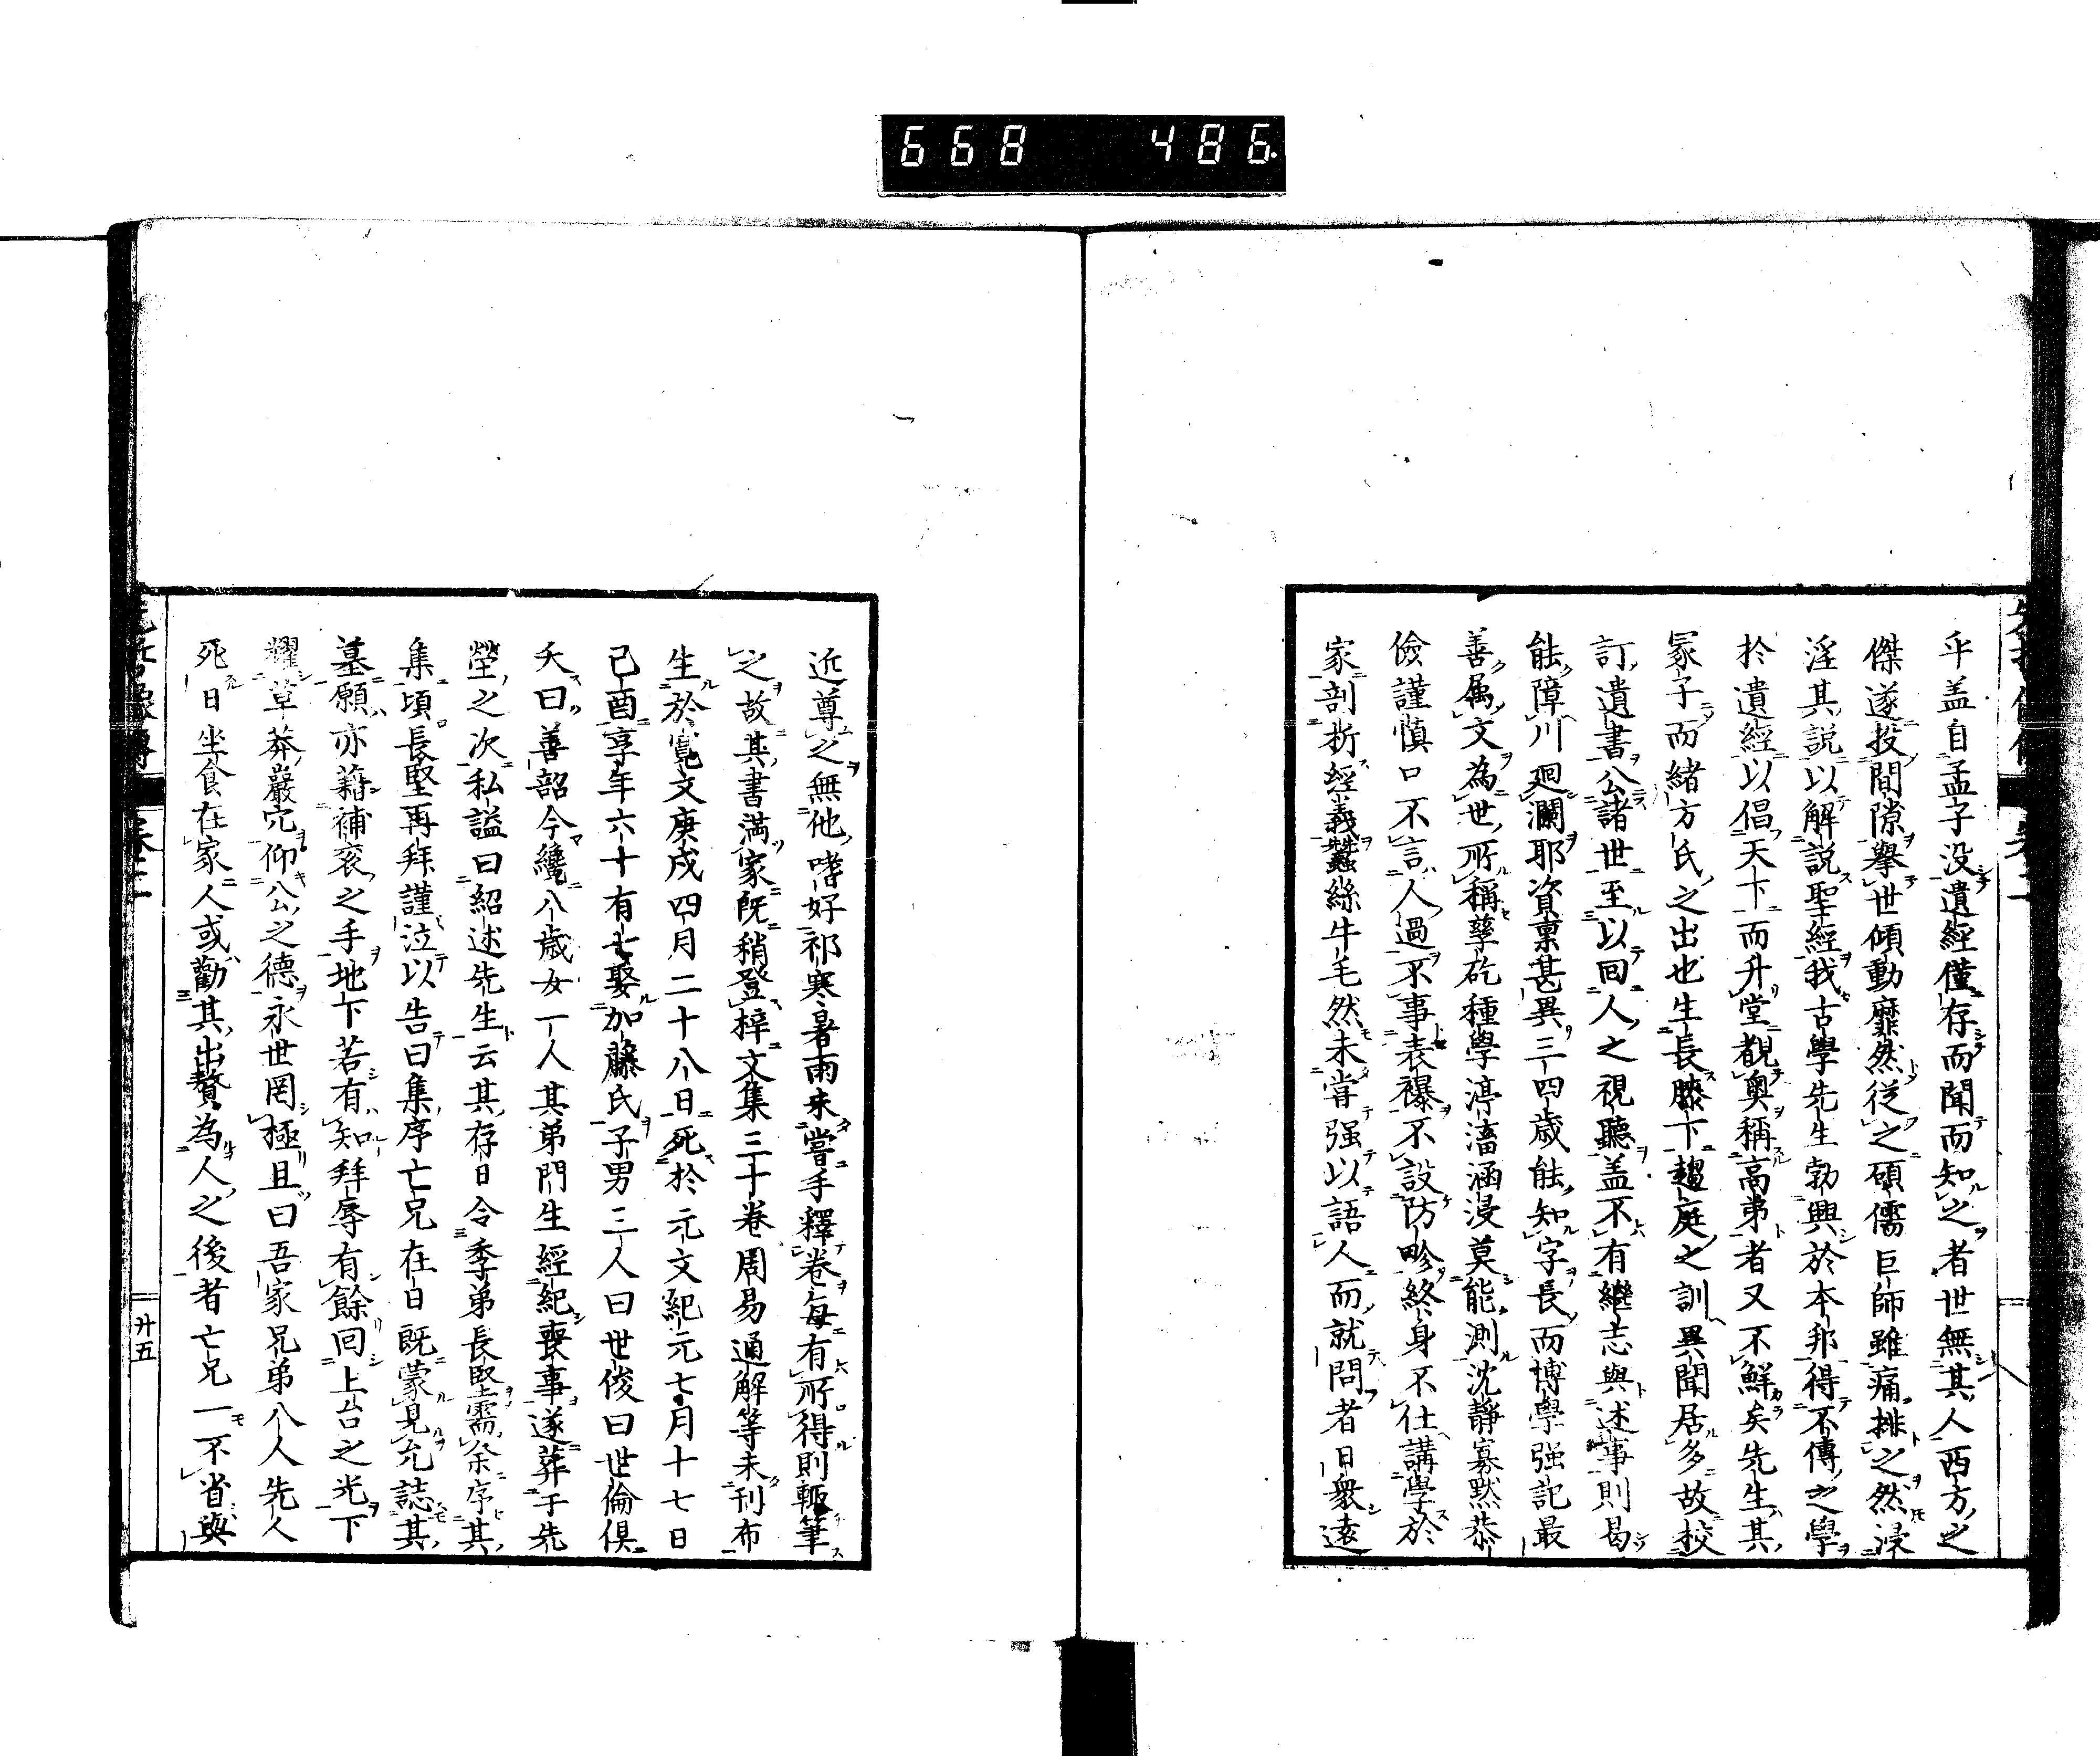 668 486.
乎盖自孟子没遺經僅存而聞而知之者世無其人西方之
傑遂投間隙擧世傾動靡然從之碩儒巨師雖痛排之然浸
淫其説以解説聖經我古學先生勃興於本邦得不傳之學
於遺經以倡天下而升堂覩奥稱高弟者又不鮮矣先生其
冢子而緒方氏之出也生長膝下趨庭之訓異聞居多故校
訂遺書公諸世至以回人之視聽盖不有繼志與述事則曷
能障川廻瀾耶資稟甚異三四歳能知字長而博學强記最
善属文為世所稱孳矻種學渟滀涵浸莫能測沈靜寡黙恭
儉謹慎口不言人過不事表襮不設防畛終身不仕講學於
家剖析經義蠶絲牛毛然未嘗强以語人而就問者日衆遠
近尊之無他嗜好祁寒暑雨未嘗手釋卷毎有所得則輙筆
之故其書満家既稍登梓文集三十卷周易通解等未刊布
生於寛文庚戌四月二十八日死於元文紀元七月十七日
己酉享年六十有七娶加藤氏子男三人曰世俊曰世倫倶
夭曰善韶今纔八歳女一人其弟門生經紀喪事遂葬于先
塋之次私謚曰紹述先生云其存日令季弟長堅需余序其
集頃長堅再拜謹泣以告曰集序亡兄在日既蒙見允誌其
墓願亦藉補衮之手地下若有知拜辱有餘回上台之光下
耀草莽巖穴仰公之德永世罔極且曰吾家兄弟八人先人
死日坐食在家人或勸其出贅為人之後者亡兄一不省與
卷二
廿五